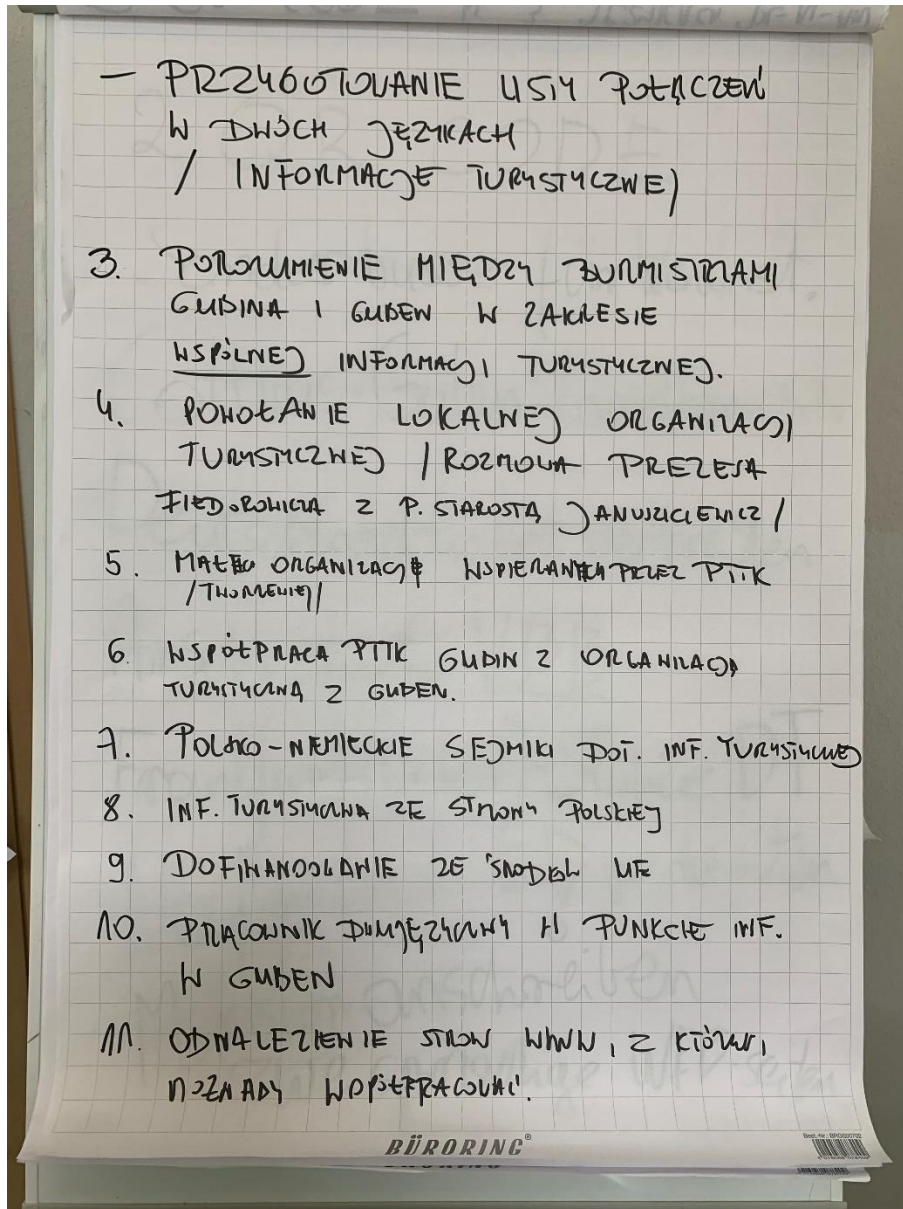 - PRZYGOTOWANIE LISTY POŁĄCZEŃ
W DWÓCH JĘZYKACH
/ INFORMACJE TURYSTYCZNE)
3. POROZUMIENIE MIĘDZY BURMISTRZAMI
GUBINA I GUBEN W ZAKRESIE
WSPÓLNEJ INFORMACJI TURYSTYCZNEJ.
4. POWOŁANIE LOKALNEJ ORGANIZACJI
TURYSTYCZNEJ / ROZMOWA PREZESA
FIEDOROWICZA Z P. STAROSTĄ JANUSZKIEWICZ /
5. ORGANIZACJI WSPIERANYCH PRZEZ PTTK
/TWORZENIE//
6. WSPÓŁPRACA PTTK GUBIN Z ORGANIZACJĄ
TURYSTYCZNĄ Z GUBEN.
7. POLSKO-NIEMIECKIE SEJMIKI DOT. INF. TURYSTYCZNEJ
8. INF. TURYSTYCZNA ZE STRONY POLSKIEJ
9. DOFINANSOWANIE ZE ŚRODKÓW UE
10. PRACOWNIK DWUJĘZYCZNY W PUNKCIE INF.
W GUBEN
11. ODNALEZIENIE STRON WWW, Z KTÓRYMI,
WSPÓŁPRACOWAĆ.
BÜRORING®